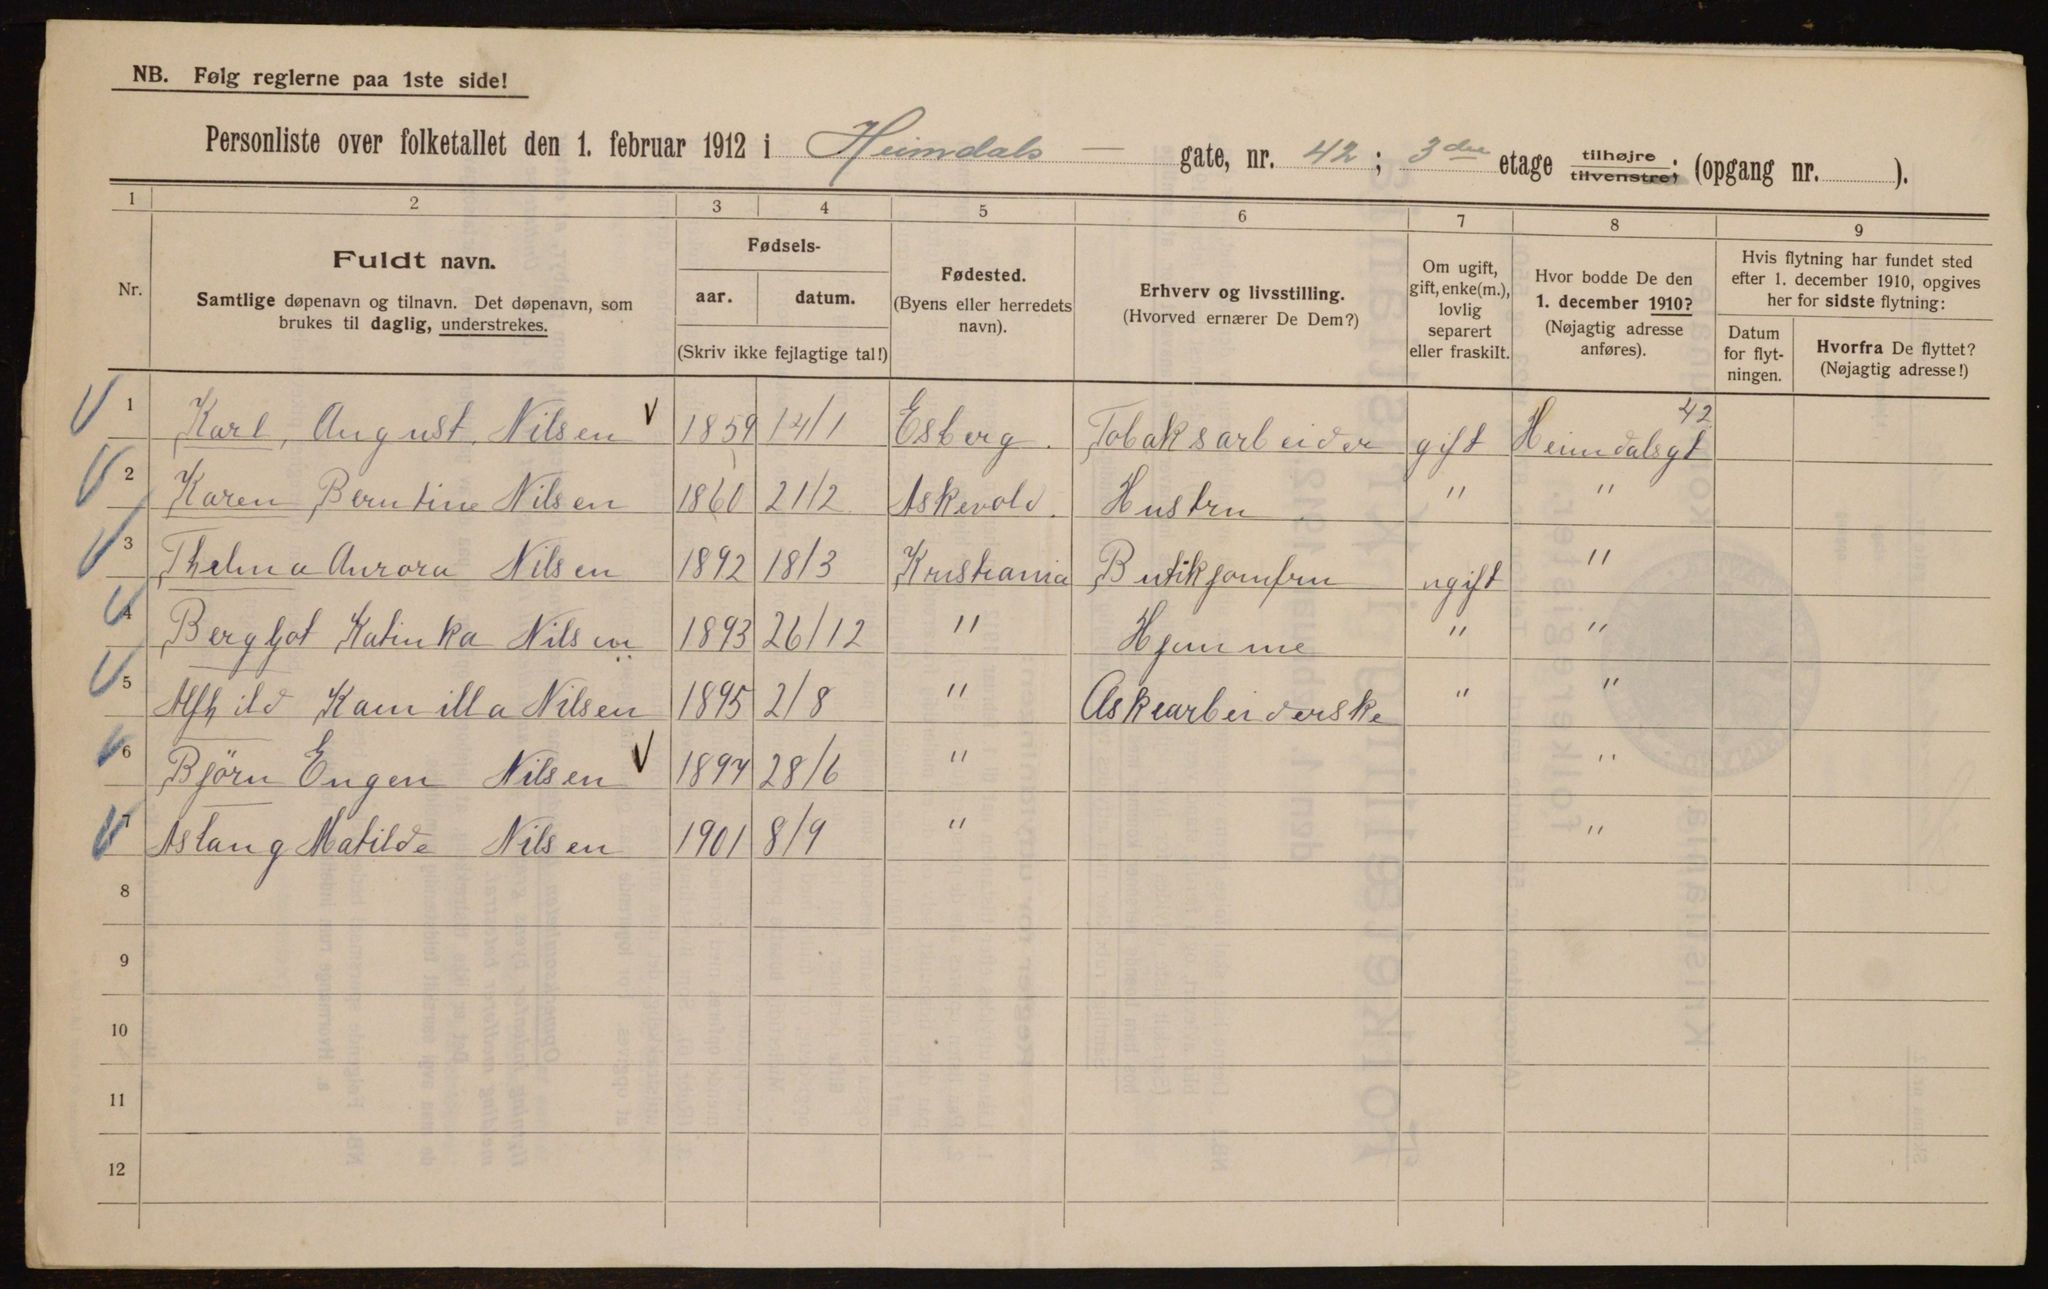 NB. Følg reglerne paa 1ste side!
Personliste over folketallet den 1. februar 1912 i Heimdals - gate, nr. 42; 3die etage tilhøjre tilvenstre; (opgang nr. ).
1 2 3 4 5 6 7 8 9
Nr.
Fuldt navn.
Samtlige døpenavn og tilnavn. Det døpenavn, som
brukes til daglig, understrekes.
Fødsels-
aar. datum.
(Skriv ikke fejlagtige tal!)
Fødested.
(Byens eller herredets
navn).
Erhverv og livsstilling.
(Hvorved ernærer De Dem?)
Om ugift,
gift, enke(m.),
lovlig
separert
eller fraskilt.
Hvor bodde De den
1. december 1910?
(Nøjagtig adresse
anføres).
Hvis flytning har fundet sted
efter 1. december 1910, opgives
her for sidste flytning:
Datum
for flyt-
ningen.
Hvorfra De flyttet?
(Nøjagtig adresse!)
1 Karl, August, Nilsen 1859 14/1 Esberg. Tobaksarbeider gift Heimdalsgt 42
2 Karen Berntine Nilsen 1860 21/2 Askevold. Hustru " "
3 Thelma Aurora Nilsen 1892 18/3 Kristiania Butikjomfru ugift "
4 Bergljot Katinka Nilsen 1893 26/12 " Hjemme " "
5 Alfhild Kamilla Nilsen 1895 2/8 " Askearbeiderske " "
6 Björn Eugen Nilsen 1897 28/6 " "
7 Aslaug Matilde Nilsen 1901 8/9 " "
8
9
10
11
12